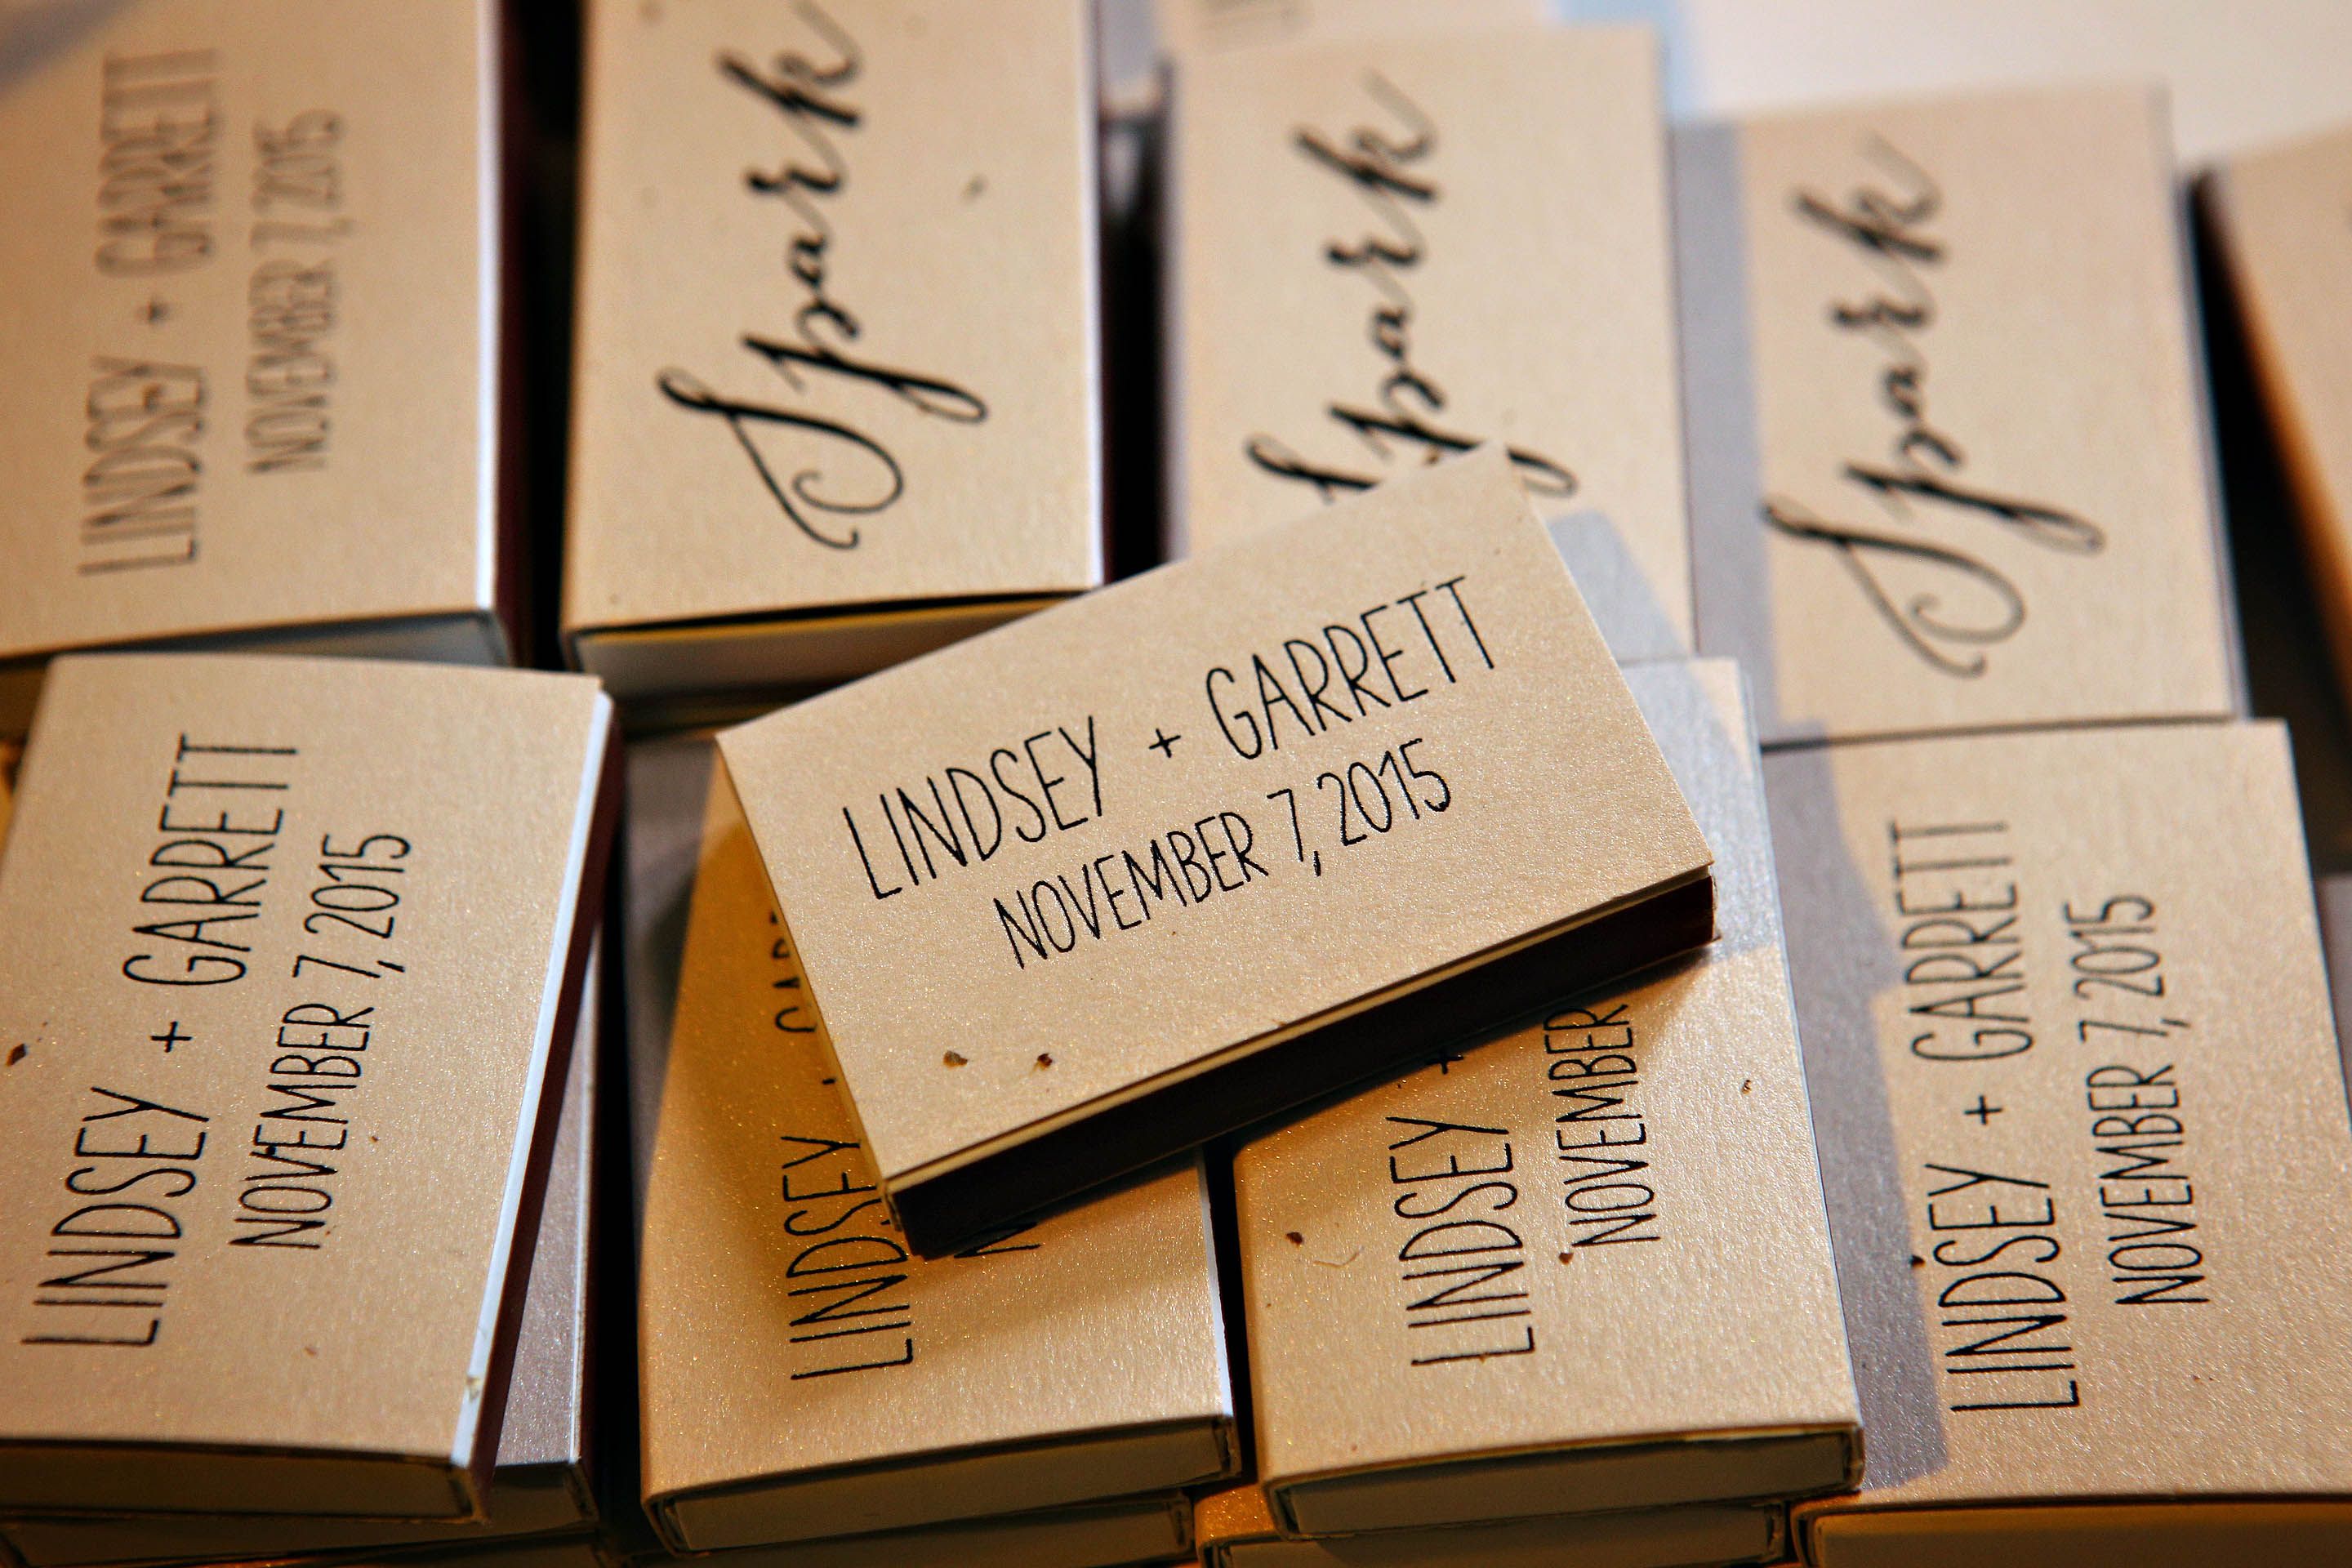 LINDSEY + GARRETT
NOVEMBER 7, 2015
Spark
Spark
Spark
LINDSEY + GARRETT
NOVEMBER 7, 2015
LINDSEY + GARRETT
NOVEMBER 7, 2015
LINDSEY + GARR
N
LINDSEY +
NOVEMBER
LINDSEY + GARRETT
NOVEMBER 7, 2015